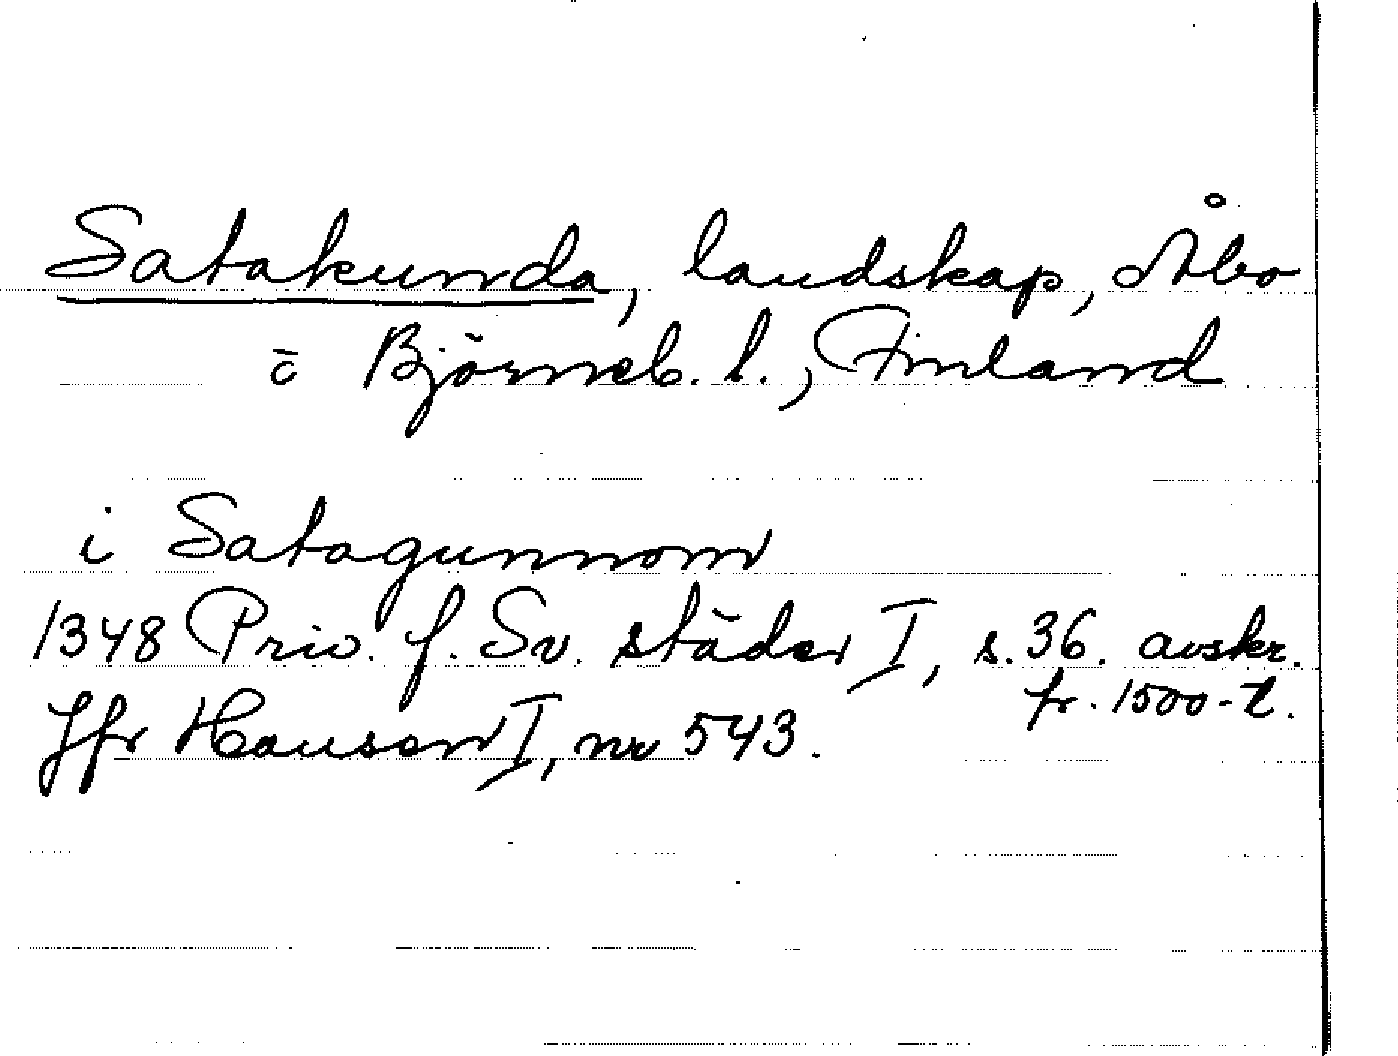 Satakunda, landskap, Åbo
o Björneb. l., Finland
i Satagunnom
1348 Priv. f. Sv. städer I, s. 36. avskr.
fr. 1500-t.
Jfr Hausen I, nr 543.